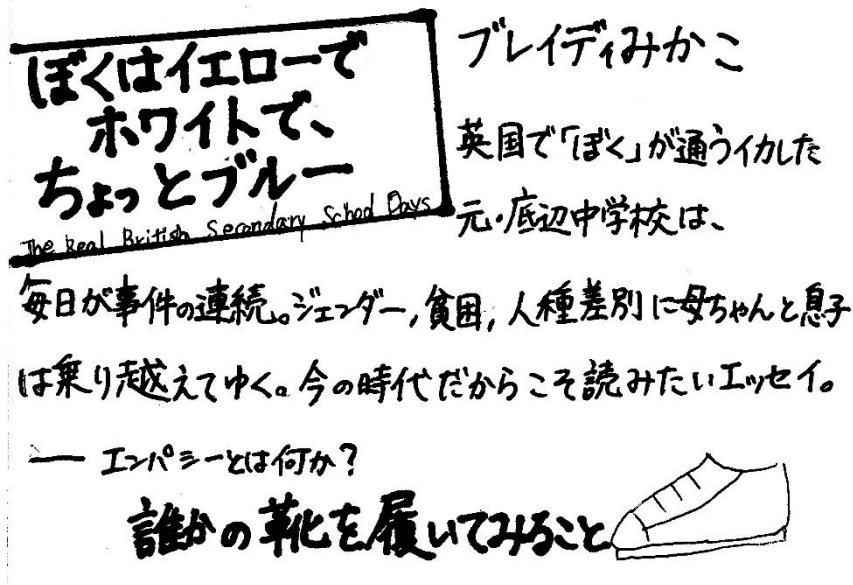 ぼくはイエローで
ホワイトで、
ちょっとブルー
The Real British Secondary School Days
ブレイディみかこ
英国で「ぼく」が通うイカした
元・底辺中学校は、
毎日が事件の連続。ジェンダー,貧困,人種差別に母ちゃんと息子
は乗り越えてゆく。今の時代だからこそ読みたいエッセイ。
― エンパシーとは何か?
誰かの靴を履いてみること